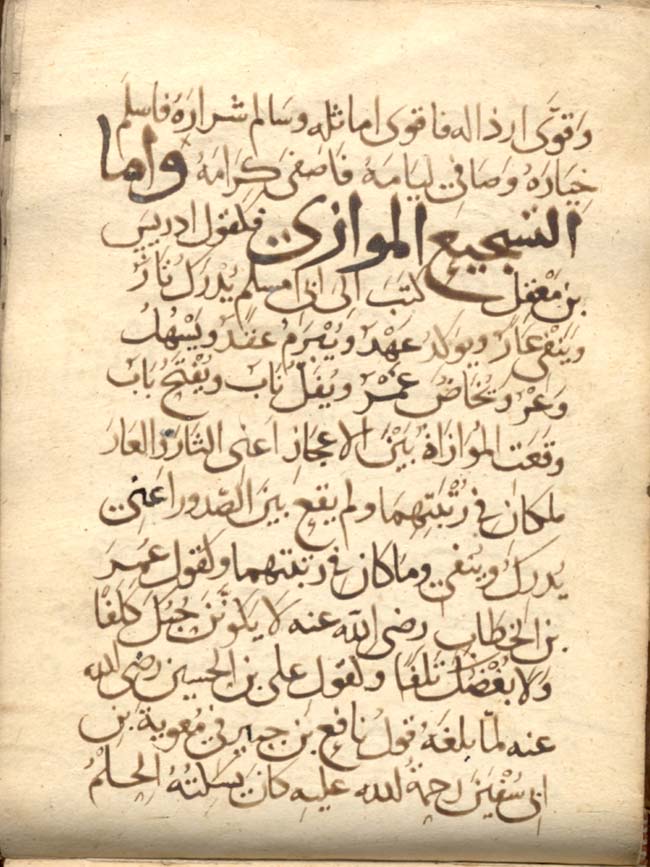 وَقوَّى ارذاله فاقوى اماثله وسالم شرارَهُ فاسلم
خِيَارَهُ وَصَافىَ ليَامَهُ فَاصَفىَ كِرَامَهُ واما
التسجيع الموازى فكقول ادريس
بن مَعْقِل كتبَ الىَ ابى مسلم يُدْرَك ثارٌ
وَيُنفى عَارٌ ويولدُ عهْدٌ وَيُبْرَمُ عقدٌ ويَسْهُلُ
وَعرٌ وَيُخاضُ غمْرٌ ويُفَلُّ نابٌ ويُفْتَحُ بابٌ
وقعَت المُوَازاةُ بَيْنَ الاعجَازِ اعنى الثار والعَارَ
ماكان فى رُتْبَتِهِمَا ولم يقع بَيْنَ الصّدور اعنى
يُدرك ويُنفىَ وماكان فى رتبتهما وكقول عُمرَ
بن الخطاب رضى اللّه عنه لا يكونَنَّ حُبّك كَلَفًا
وَلا بُغْضُكَ تَلَفًا وكقول على بن الحسين رضى الله
عنه لمَّا بَلغَهُ قولُ نافِع بنَ جبير فى مُعٰوية بن
ابى سُفْينَ رحمةُ الله عليه كانَ يُسكِتُهُ الحِلمُ